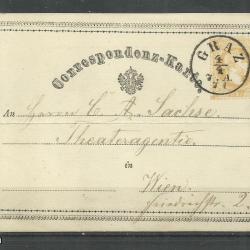 Correspondenz-Karte.
GRAZ
An Herrn C. A. Sachse
Theateragentie
in
Wien
Friedrichstr. 2